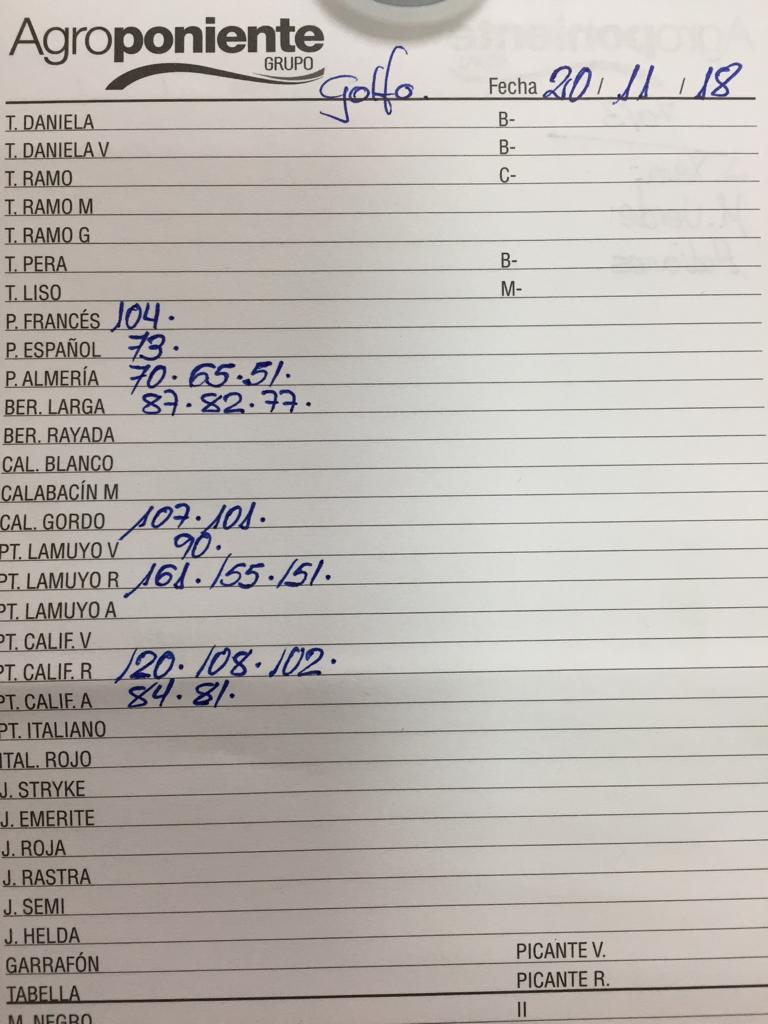 Agroponiente
GRUPO
Golfo. Fecha 20 / 11 / 18
T. DANIELA B-
T. DANIELA V B-
T. RAMO C-
T. RAMO M
T. RAMO G
T. PERA B-
T. LISO M-
P. FRANCÉS 104.
P. ESPAÑOL 73.
P. ALMERÍA 70. 65. 51.
BER. LARGA 87. 82. 77.
BER. RAYADA
CAL. BLANCO
CALABACÍN M
CAL. GORDO 107. 101.
PT. LAMUYO V 90.
PT. LAMUYO R 161. 155. 151.
PT. LAMUYO A
PT. CALIF. V
PT. CALIF. R 120. 108. 102.
PT. CALIF. A 84. 81.
PT. ITALIANO
ITAL. ROJO
J. STRYKE
J. EMERITE
J. ROJA
J. RASTRA
J. SEMI
J. HELDA
GARRAFÓN PICANTE V.
TABELLA PICANTE R.
M. NEGRO II